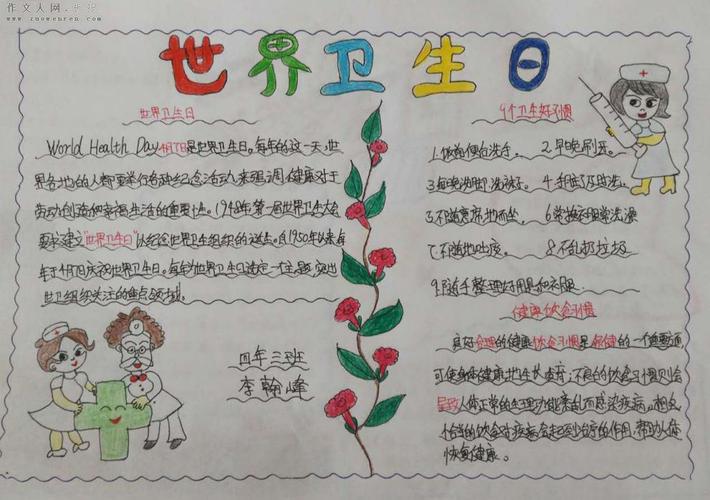 作文人网
www.zuowenren.com
世界卫生日
世界卫生日
World Health Day 4月7日是世界卫生日。每年的这一天,世
界各地的人都要举行各种纪念活动,来强调健康对于
劳动创造和幸福生活的重要性。1948年第一届世界卫生大会
要求建立"世界卫生日"以纪念世界卫生组织的 自1950年以来每
年于4月7日庆祝世界卫生日。每年为世界卫生日选定一主题,突出
世卫组织关注的重点领域。
四年三班
李翰峰
9个卫生好习惯
1.饭前便后洗手。 2.早晚刷牙。
3.每晚洗脚洗袜子。 4.手脏了及时洗。
5.不随意席地而坐。 6.常换衣服常洗澡
7.不随地吐痰。 8.不乱扔垃圾
9.随手整理好用具和衣服
健康饮食习惯
良好合理的健康饮食习惯是保健的一个重要方面
可使身体健康地生长、发育;不良的饮食习惯则会
导致人体正常的生理功能紊乱而感染疾病。相反
恰当的饮食对疾病会起到治疗的作用,帮助人体
恢复健康。